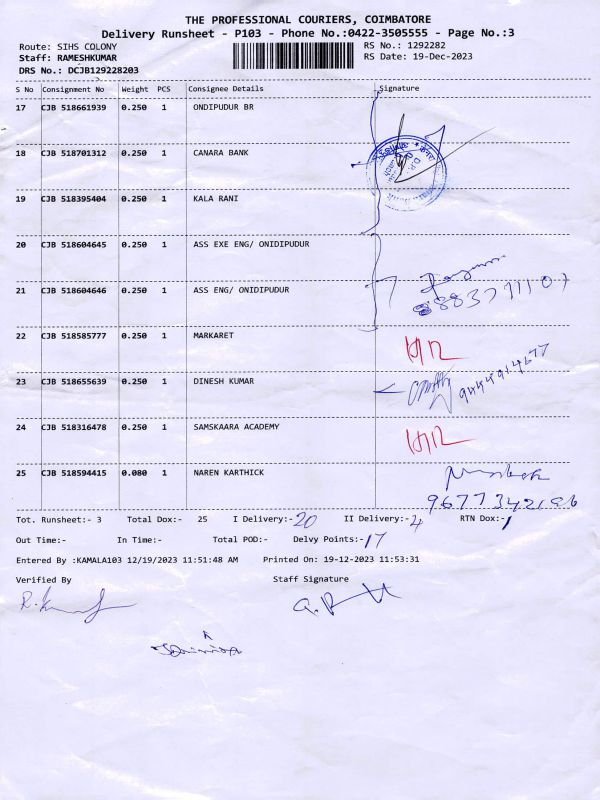 THE PROFESSIONAL COURIERS, COIMBATORE
Delivery Runsheet - P103 - Phone No.:0422-3505555 - Page No.:3
Route: SIHS COLONY
RS No.: 1292282
Staff: RAMESHKUMAR
RS Date: 19-Dec-2023
DRS No.: DCJB129228203
S No Consignment No Weight PCS Consignee Details Signature
17 CJB 518661939 0.250 1 ONDIPUDUR BR
18 CJB 518701312 0.250 1 CANARA BANK
19 CJB 518395404 0.250 1 KALA RANI
20 CJB 518604645 0.250 1 ASS EXE ENG/ ONIDIPUDUR
21 CJB 518604646 0.250 1 ASS ENG/ ONIDIPUDUR
22 CJB 518585777 0.250 1 MARKARET
23 CJB 518655639 0.250 1 DINESH KUMAR 9444914677
24 CJB 518316478 0.250 1 SAMSKAARA ACADEMY
25 CJB 518594415 0.080 1 NAREN KARTHICK
Tot. Runsheet:- 3 Total Dox:- 25 I Delivery:- 20 II Delivery:- 4 RTN Dox:- 1
Out Time:- In Time:- Total POD:- Delvy Points:- 17
Entered By :KAMALA103 12/19/2023 11:51:48 AM Printed On: 19-12-2023 11:53:31
Verified By Staff Signature